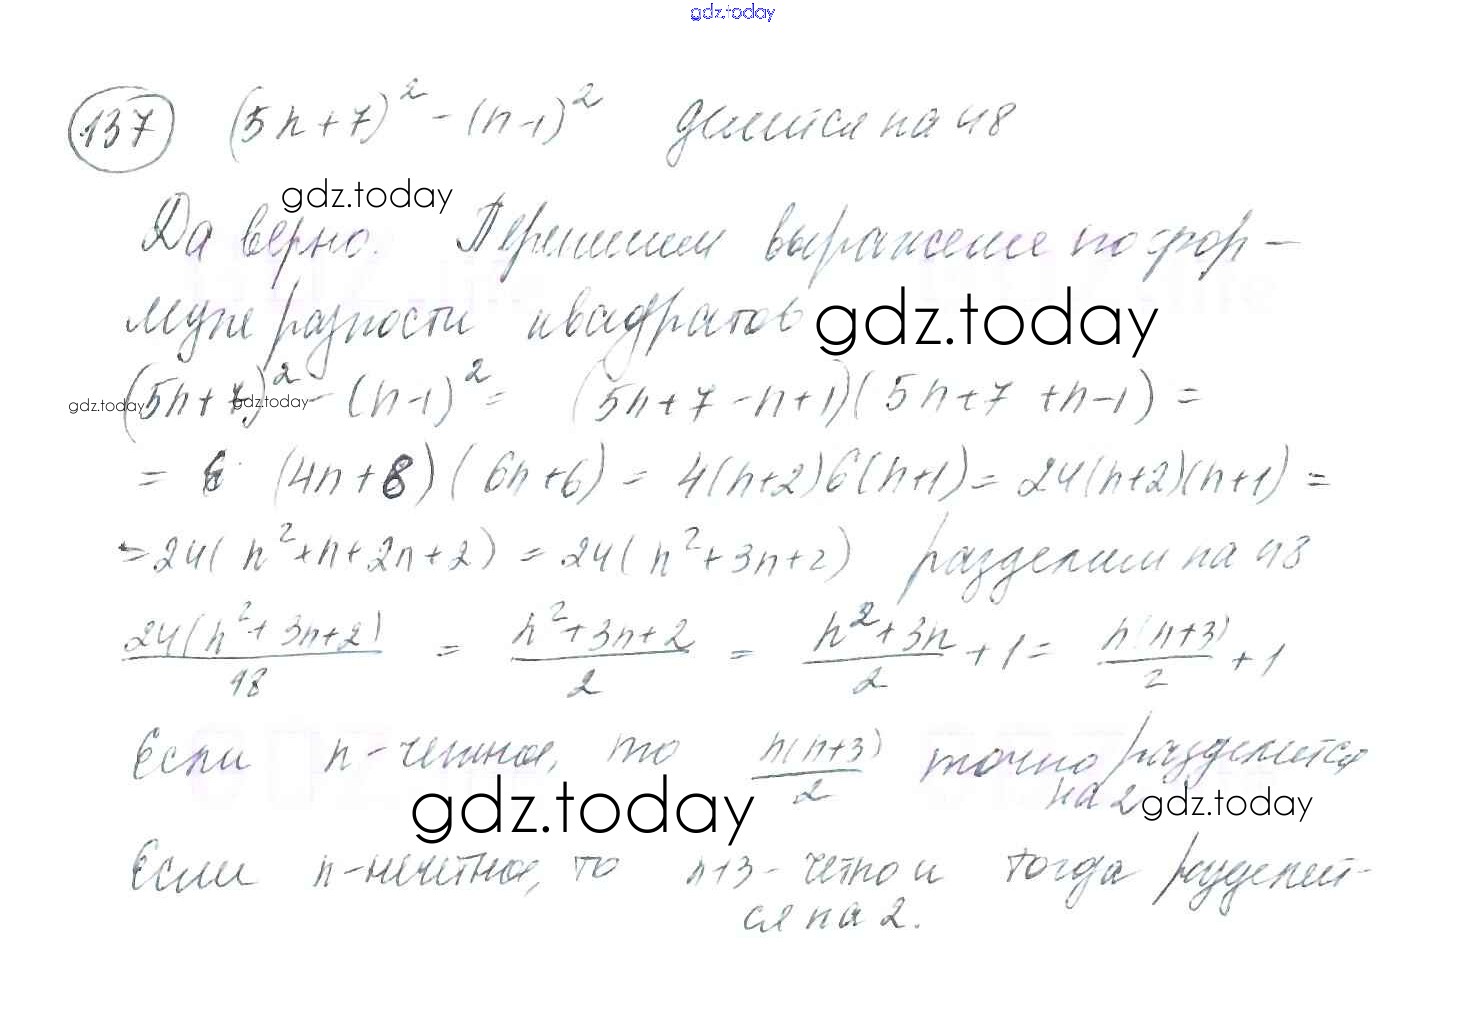 gdz.today
137 (5n+7)² - (n-1)² делится на 48
gdz.today
Да верно. Перепишем выражение по фор-
муле разности квадратов gdz.today
gdz.today gdz.today
(5n+7)² - (n-1)² = (5n+7-n+1)(5n+7+n-1) =
= (4n+8)(6n+6) = 4(n+2)6(n+1) = 24(n+2)(n+1) =
= 24(n²+n+2n+2) = 24(n²+3n+2) разделим на 48
24(n²+3n+2)/48 = n²+3n+2/2 = n²+3n/2 + 1 = n(n+3)/2 + 1
Если n-четное, то n(n+3)/2 точно разделится
на 2
gdz.today gdz.today
Если n-нечетное, то n+3 - четно и тогда разделит-
ся на 2.